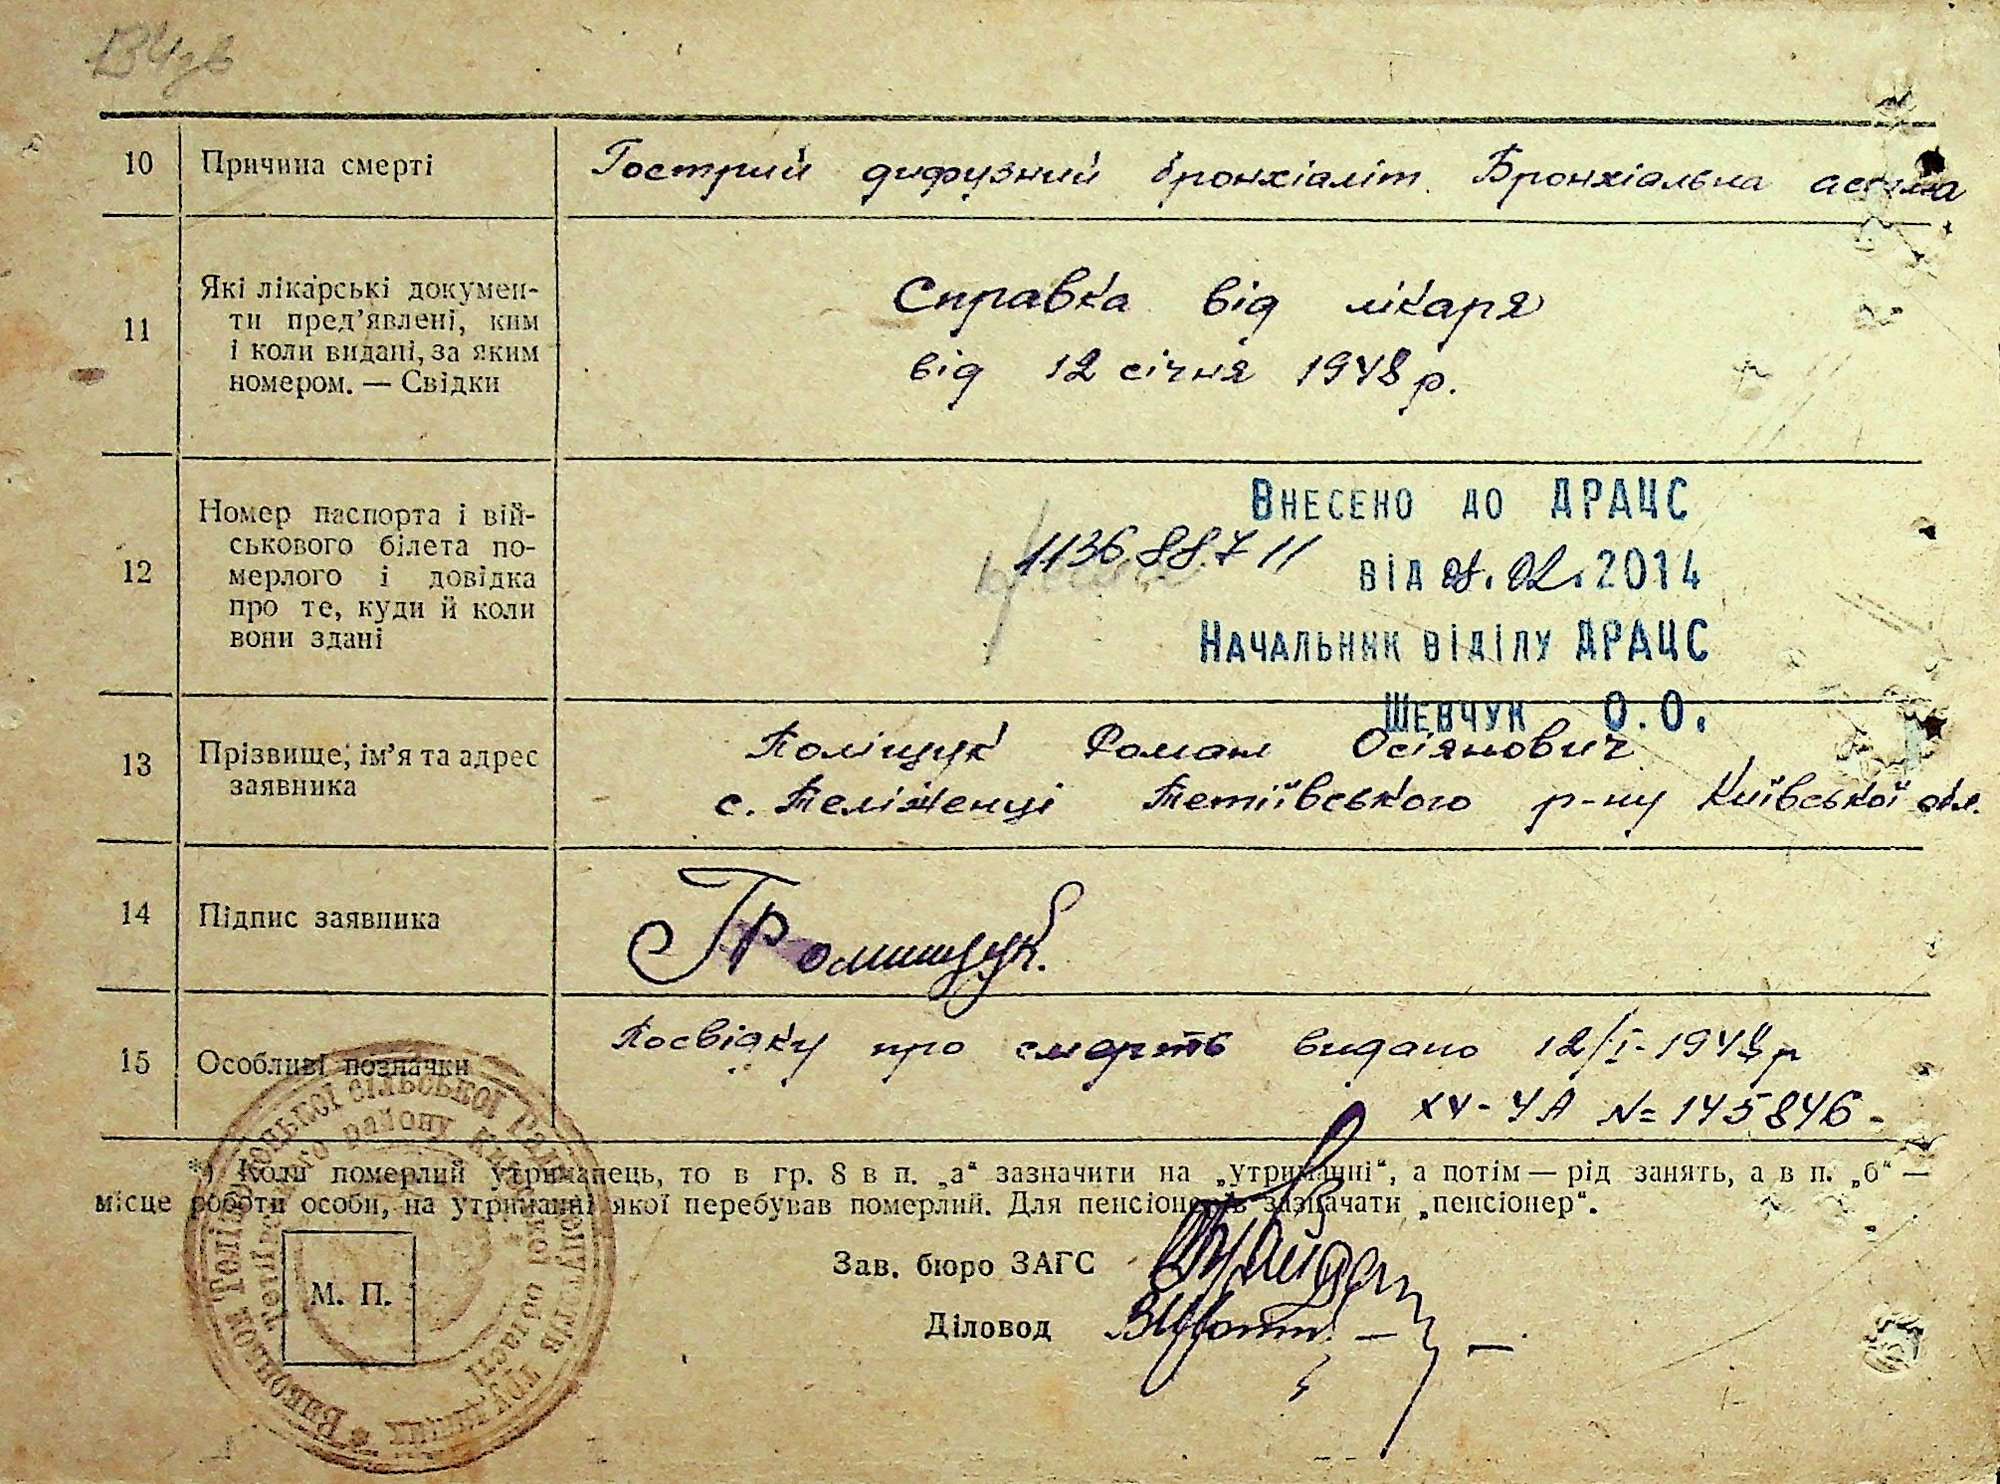 10 Причина смерті Гострий дифузний бронхіаліт. Бронхіальна астма
11 Які лікарські докумен-
ти пред’явлені, ким
і коли видані, за яким
номером. — Свідки
Справка від лікаря
від 12 січня 1948 р.
12 Номер паспорта і вій-
ськового білета по-
мерлого і довідка
про те, куди й коли
вони здані
Внесено до ДРАЦС
11368871
від 02.2014
Начальник відділу ДРАЦС
Шевчук О.О.
13 Прізвище, ім’я та адрес
заявника
Поліщук Роман Осіянович
с. Теліженці Тетіївського р-ну Київської обл.
14 Підпис заявника
15 Особливі позначки
Посвідку про смерть видано 12/I-1948 р
ХУ-УА № 145846-
*) Коли померлий утриманець, то в гр. 8 в п. „а“ зазначити на „утриманні“, а потім — рід занять, а в п. „б“ —
місце роботи особи, на утриманні якої перебував померлий. Для пенсіонерів зазначати „пенсіонер“.
Зав. бюро ЗАГС
Діловод
М. П.
Виконком Теліженецької сільської Ради депутатів трудящих
Тетіївського району Київської області